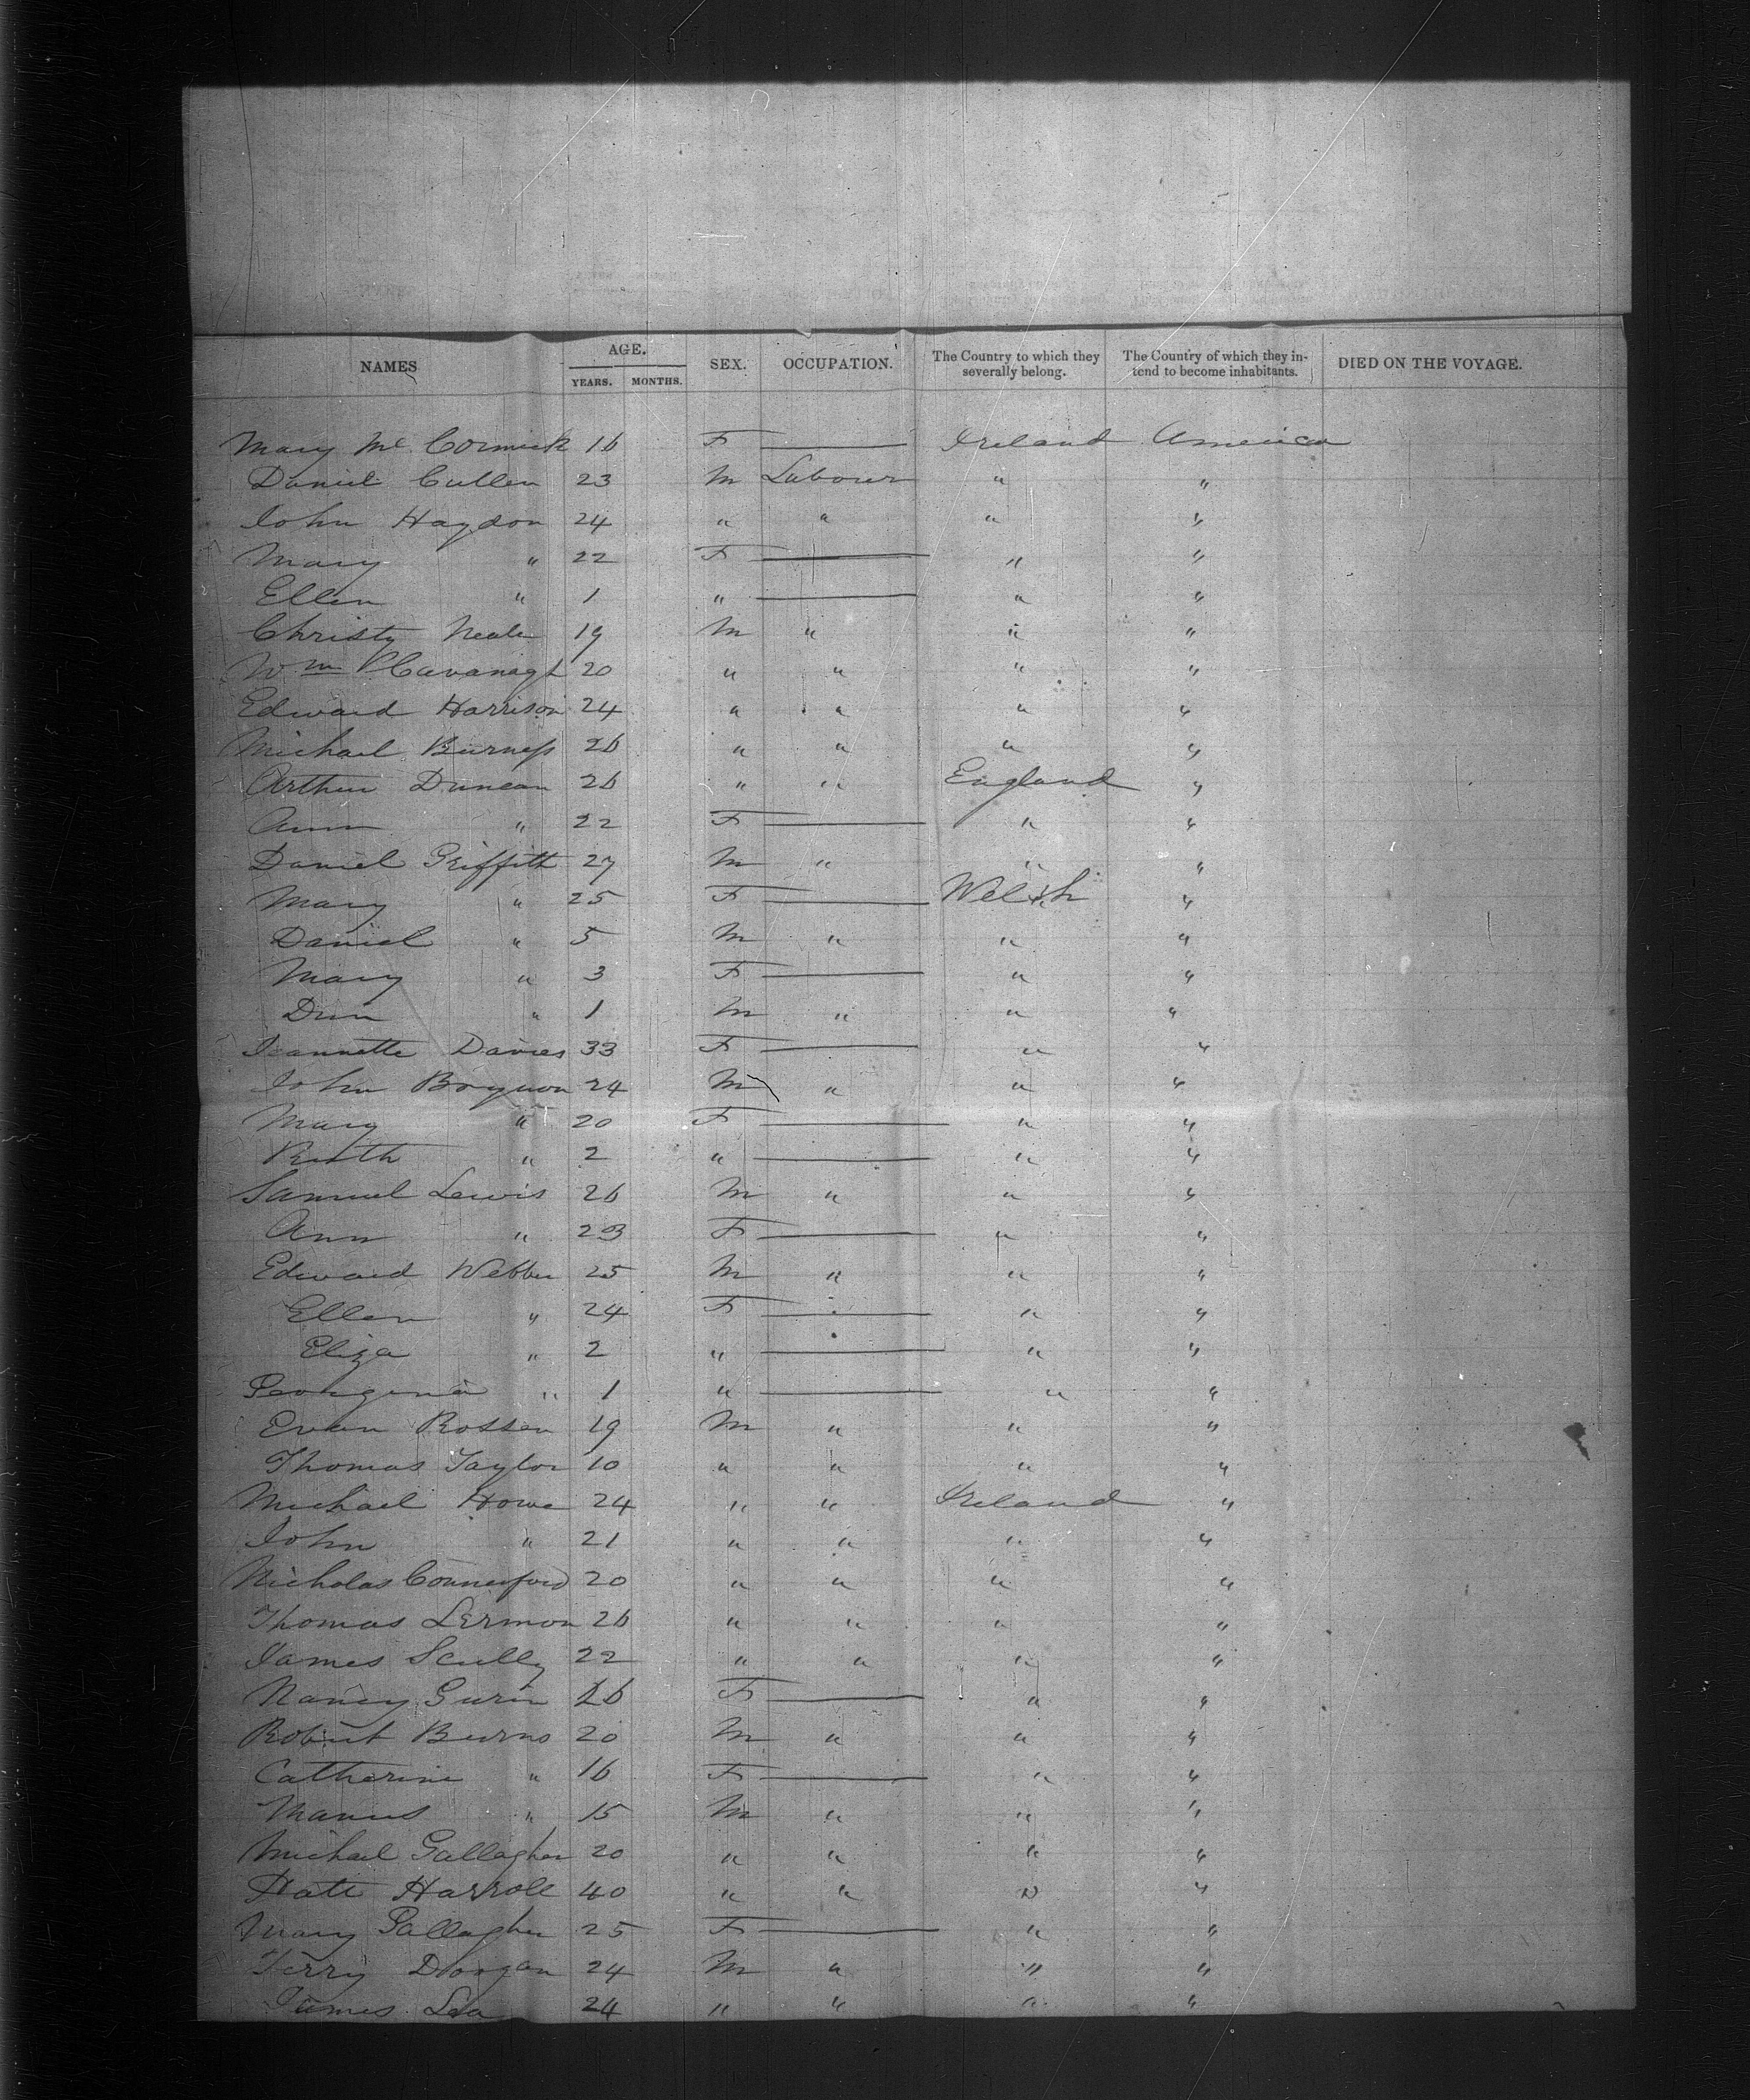 NAMES AGE. YEARS. MONTHS. SEX. OCCUPATION. The Country to which they severally belong. The Country of which they intend to become inhabitants. DIED ON THE VOYAGE.
Mary McCormick 16 F — Ireland America
Daniel Cullen 23 M Labourer " "
John Haydon 24 " " " "
Mary " 22 F — " "
Ellen " 1 " — " "
Christy Neale 19 M " " "
Wm Cavanagh 20 " " " "
Edward Harrison 24 " " " "
Michael Burness 26 " " " "
Arthur Duncan 26 " " England "
Ann " 22 F — " "
Daniel Griffith 27 M " " "
Mary " 25 F — Welsh "
Daniel " 5 M " " "
Mary " 3 F — " "
" 1 M " " "
Jeannette Davies 33 F — " "
John 24 M " " "
Mary " 20 F — " "
Ruth " 2 " — " "
Samuel Lewis 26 M " " "
Ann " 23 F — " "
Edward Webber 25 M " " "
Ellen " 24 F — " "
Eliza " 2 " — " "
Georgenia " 1 " — " "
Evan Rosser 19 M " " "
Thomas Taylor 10 " " " "
Michael Howe 24 " " Ireland "
John " 21 " " " "
Nicholas Connerford 20 " " " "
Thomas Lermon 26 " " " "
James Scully 22 " " " "
Nancy 26 F — " "
Robert Burns 20 M " " "
Catherine " 16 F — " "
Manus " 15 M " " "
Michael Gallagher 20 " " " "
Harrole 40 " " " "
Mary Gallagher 25 F — " "
Terry Dorgan 24 M " " "
James Lea 24 " " " "